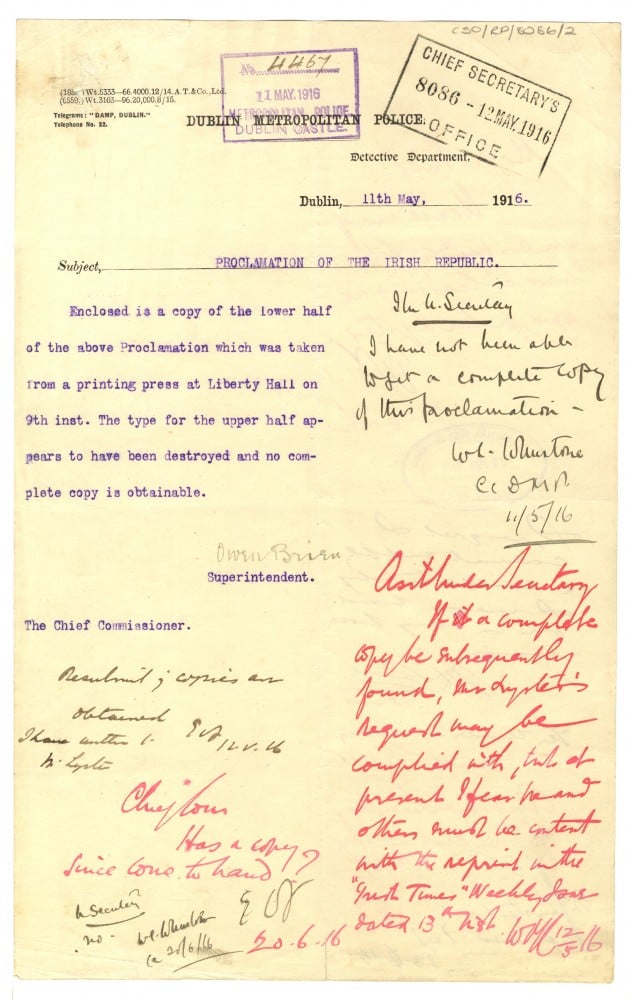 CSO/RP/8086/2
(185s )Wt.5333—66.4000.12/14.A.T.&Co.,Ltd.
(6559.)Wt.3103—96.20,000.8/15.
Telegrams: "DAMP, DUBLIN."
Telephone No. 22.
No. 4467
11 MAY.1916
METROPOLITAN POLICE
DUBLIN CASTLE.
CHIEF SECRETARY'S
8086 -12MAY.1916
OFFICE
DUBLIN METROPOLITAN POLICE.
Detective Department,
Dublin, 11th May, 1916.
Subject, PROCLAMATION OF THE IRISH REPUBLIC.
Enclosed is a copy of the lower half
of the above Proclamation which was taken
from a printing press at Liberty Hall on
9th inst. The type for the upper half ap-
pears to have been destroyed and no com-
plete copy is obtainable.
Owen Brien
Superintendent.
The Chief Commissioner.
U. Secretary
I have not been able
to get a complete copy
of this proclamation -
CC DMP.
11/5/16
Asst Under Secretary
If a complete
copy be subsequently
found, Mr Lyster's
request may be
complied with, but at
present I fear he and
others must be content
with the reprint in the
"Irish Times" Weekly Issue
dated 13th Inst.
12/5 16
Resubmit if copies are
obtained
12.5.16
I have written to
Mr Lyster
Chief Com
Has a copy
since come to hand?
20.6.16
U Secretary
no.
CC 20/6/16